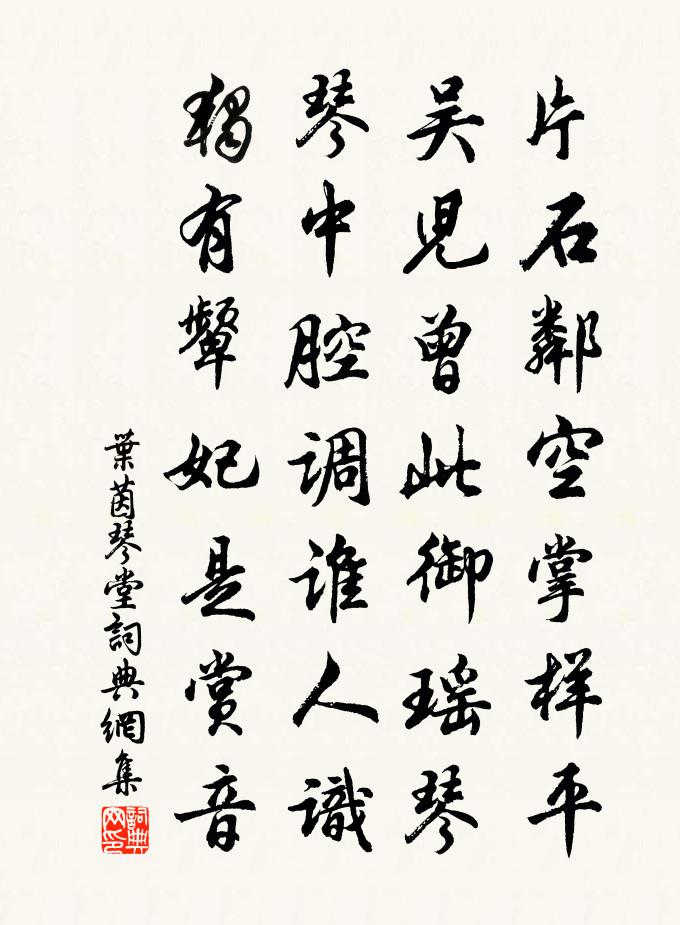 片石鄰空掌样平
吴児曾此御瑶琴
琴中腔调谁人識
獨有顰妃是赏音
葉茵琴堂詞典網集
詞典网印